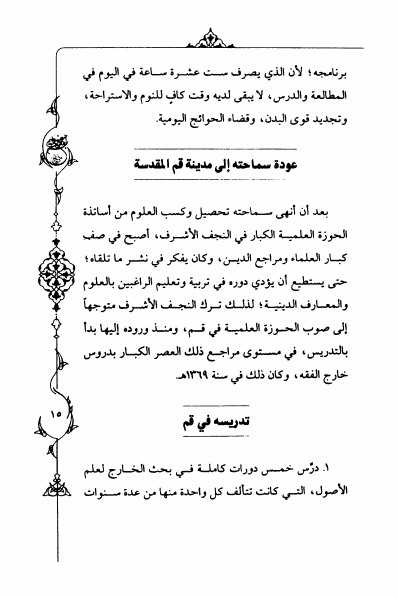 برنامجه؛ لأن الذي يصرف ست عشرة ساعة في اليوم في
المطالعة والدرس، لا يبقى لديه وقت كافٍ للنوم والاستراحة،
وتجديد قوى البدن، وقضاء الحوائج اليومية.
عودة سماحته إلى مدينة قم المقدسة
بعد أن أنهى سماحته تحصيل وكسب العلوم من أساتذة
الحوزة العلمية الكبار في النجف الأشرف، أصبح في صف
كبار العلماء ومراجع الدين، وكان يفكر في نشر ما تلقاه؛
حتى يستطيع أن يؤدي دوره في تربية وتعليم الراغبين بالعلوم
والمعارف الدينية؛ لذلك ترك النجف الأشرف متوجهاً
إلى صوب الحوزة العلمية في قم، ومنذ وروده إليها بدأ
بالتدريس، في مستوى مراجع ذلك العصر الكبار بدروس
خارج الفقه، وكان ذلك في سنة ١٣٦٩هـ.
١٥
تدريسه في قم
١. درّس خمس دورات كاملة في بحث الخارج لعلم
الأصول، التي كانت تتألف كل واحدة منها من عدة سنوات